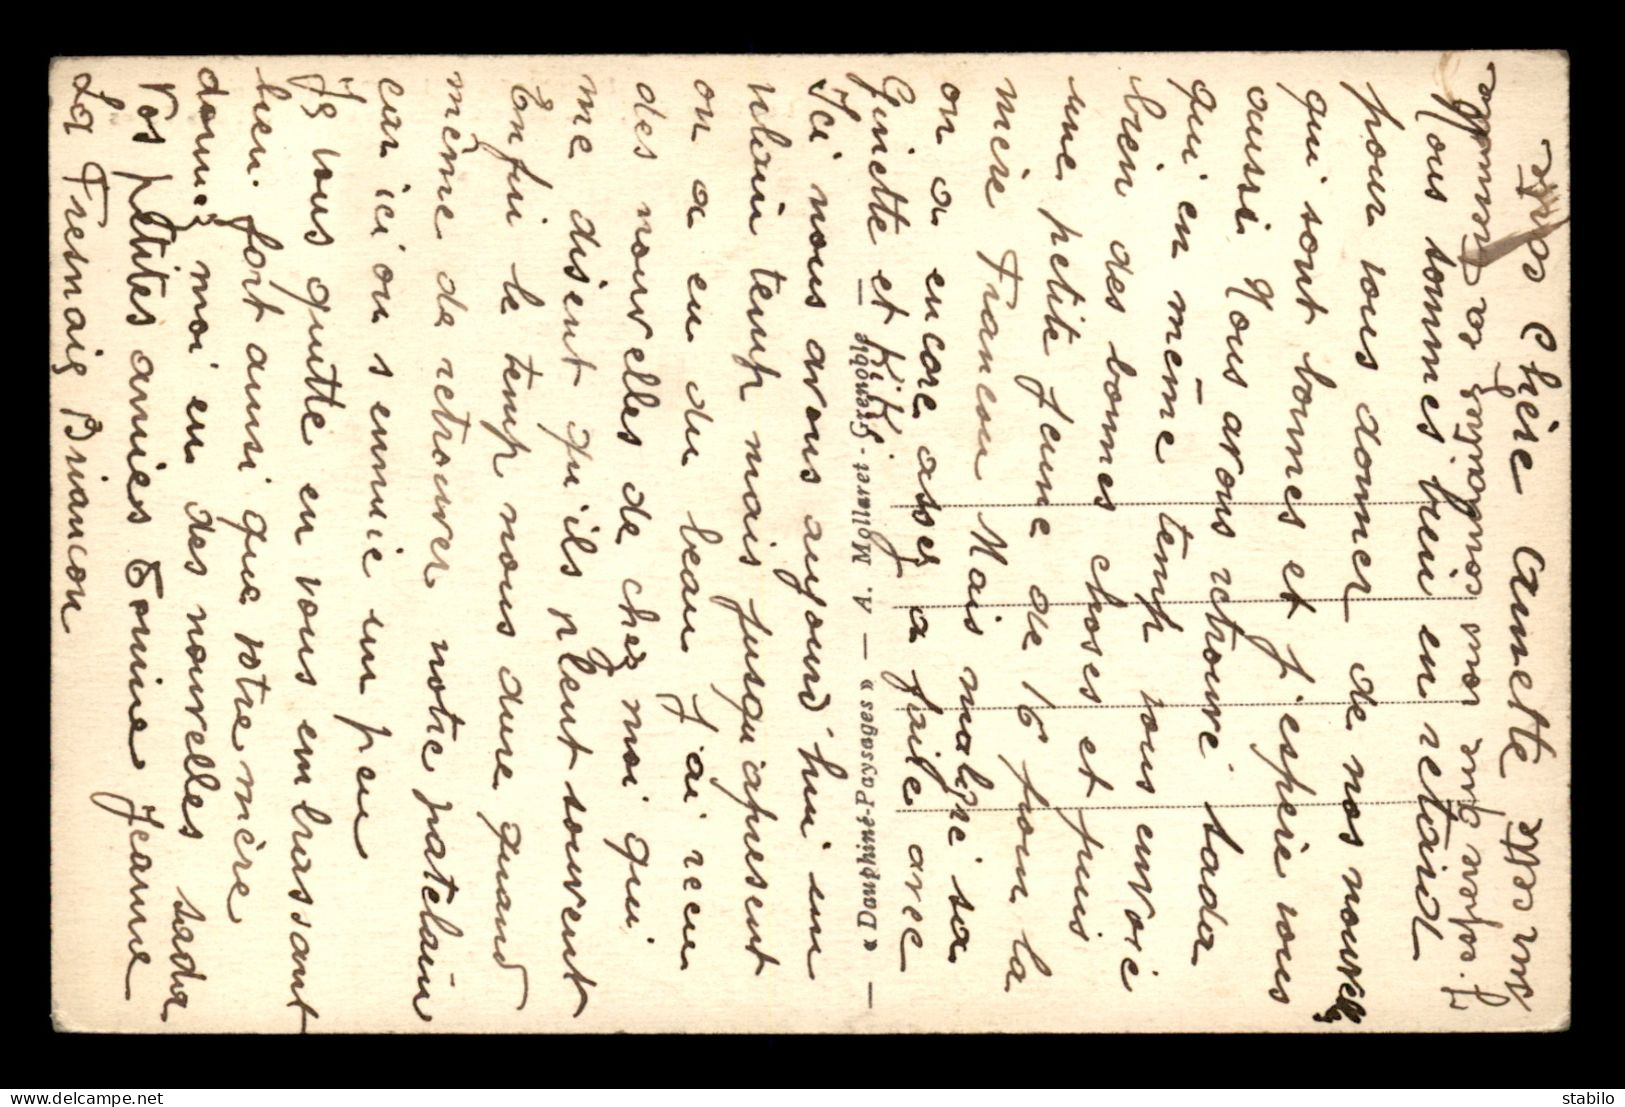 Très Chère Annette
Nous sommes bien en retard
pour vous donner de nos nouvelles
qui sont bonnes et j'espère vous
aussi Nous avons retrouvé Sada
qui en même temp vous envoie
bien des bonnes choses et puis
une petite Jeune de 16 pour la
mère Francou Mais malgré sa
on a encore assez a faire avec
Ginette et Kiki
Ici nous avons aujourd'hui un
vilain temp mais jusqu'apresent
on a eu du beau J'ai recu
des nouvelles de chez moi qui
me disent qu'ils pleut souvent
Enfin le temp nous dure quand
même de retrouver notre patelain
car ici on s'ennuie un peu
Je vous quitte en vous embrassant
bien fort ainsi que votre mère
donnez moi en des nouvelles Sada
Vos petites amies Jeanne
La Fresnaig Briancon
J. espère que vous conservez sa
sur cette
— « Dauphiné-Paysages » — A. Mollaret - Grenoble —